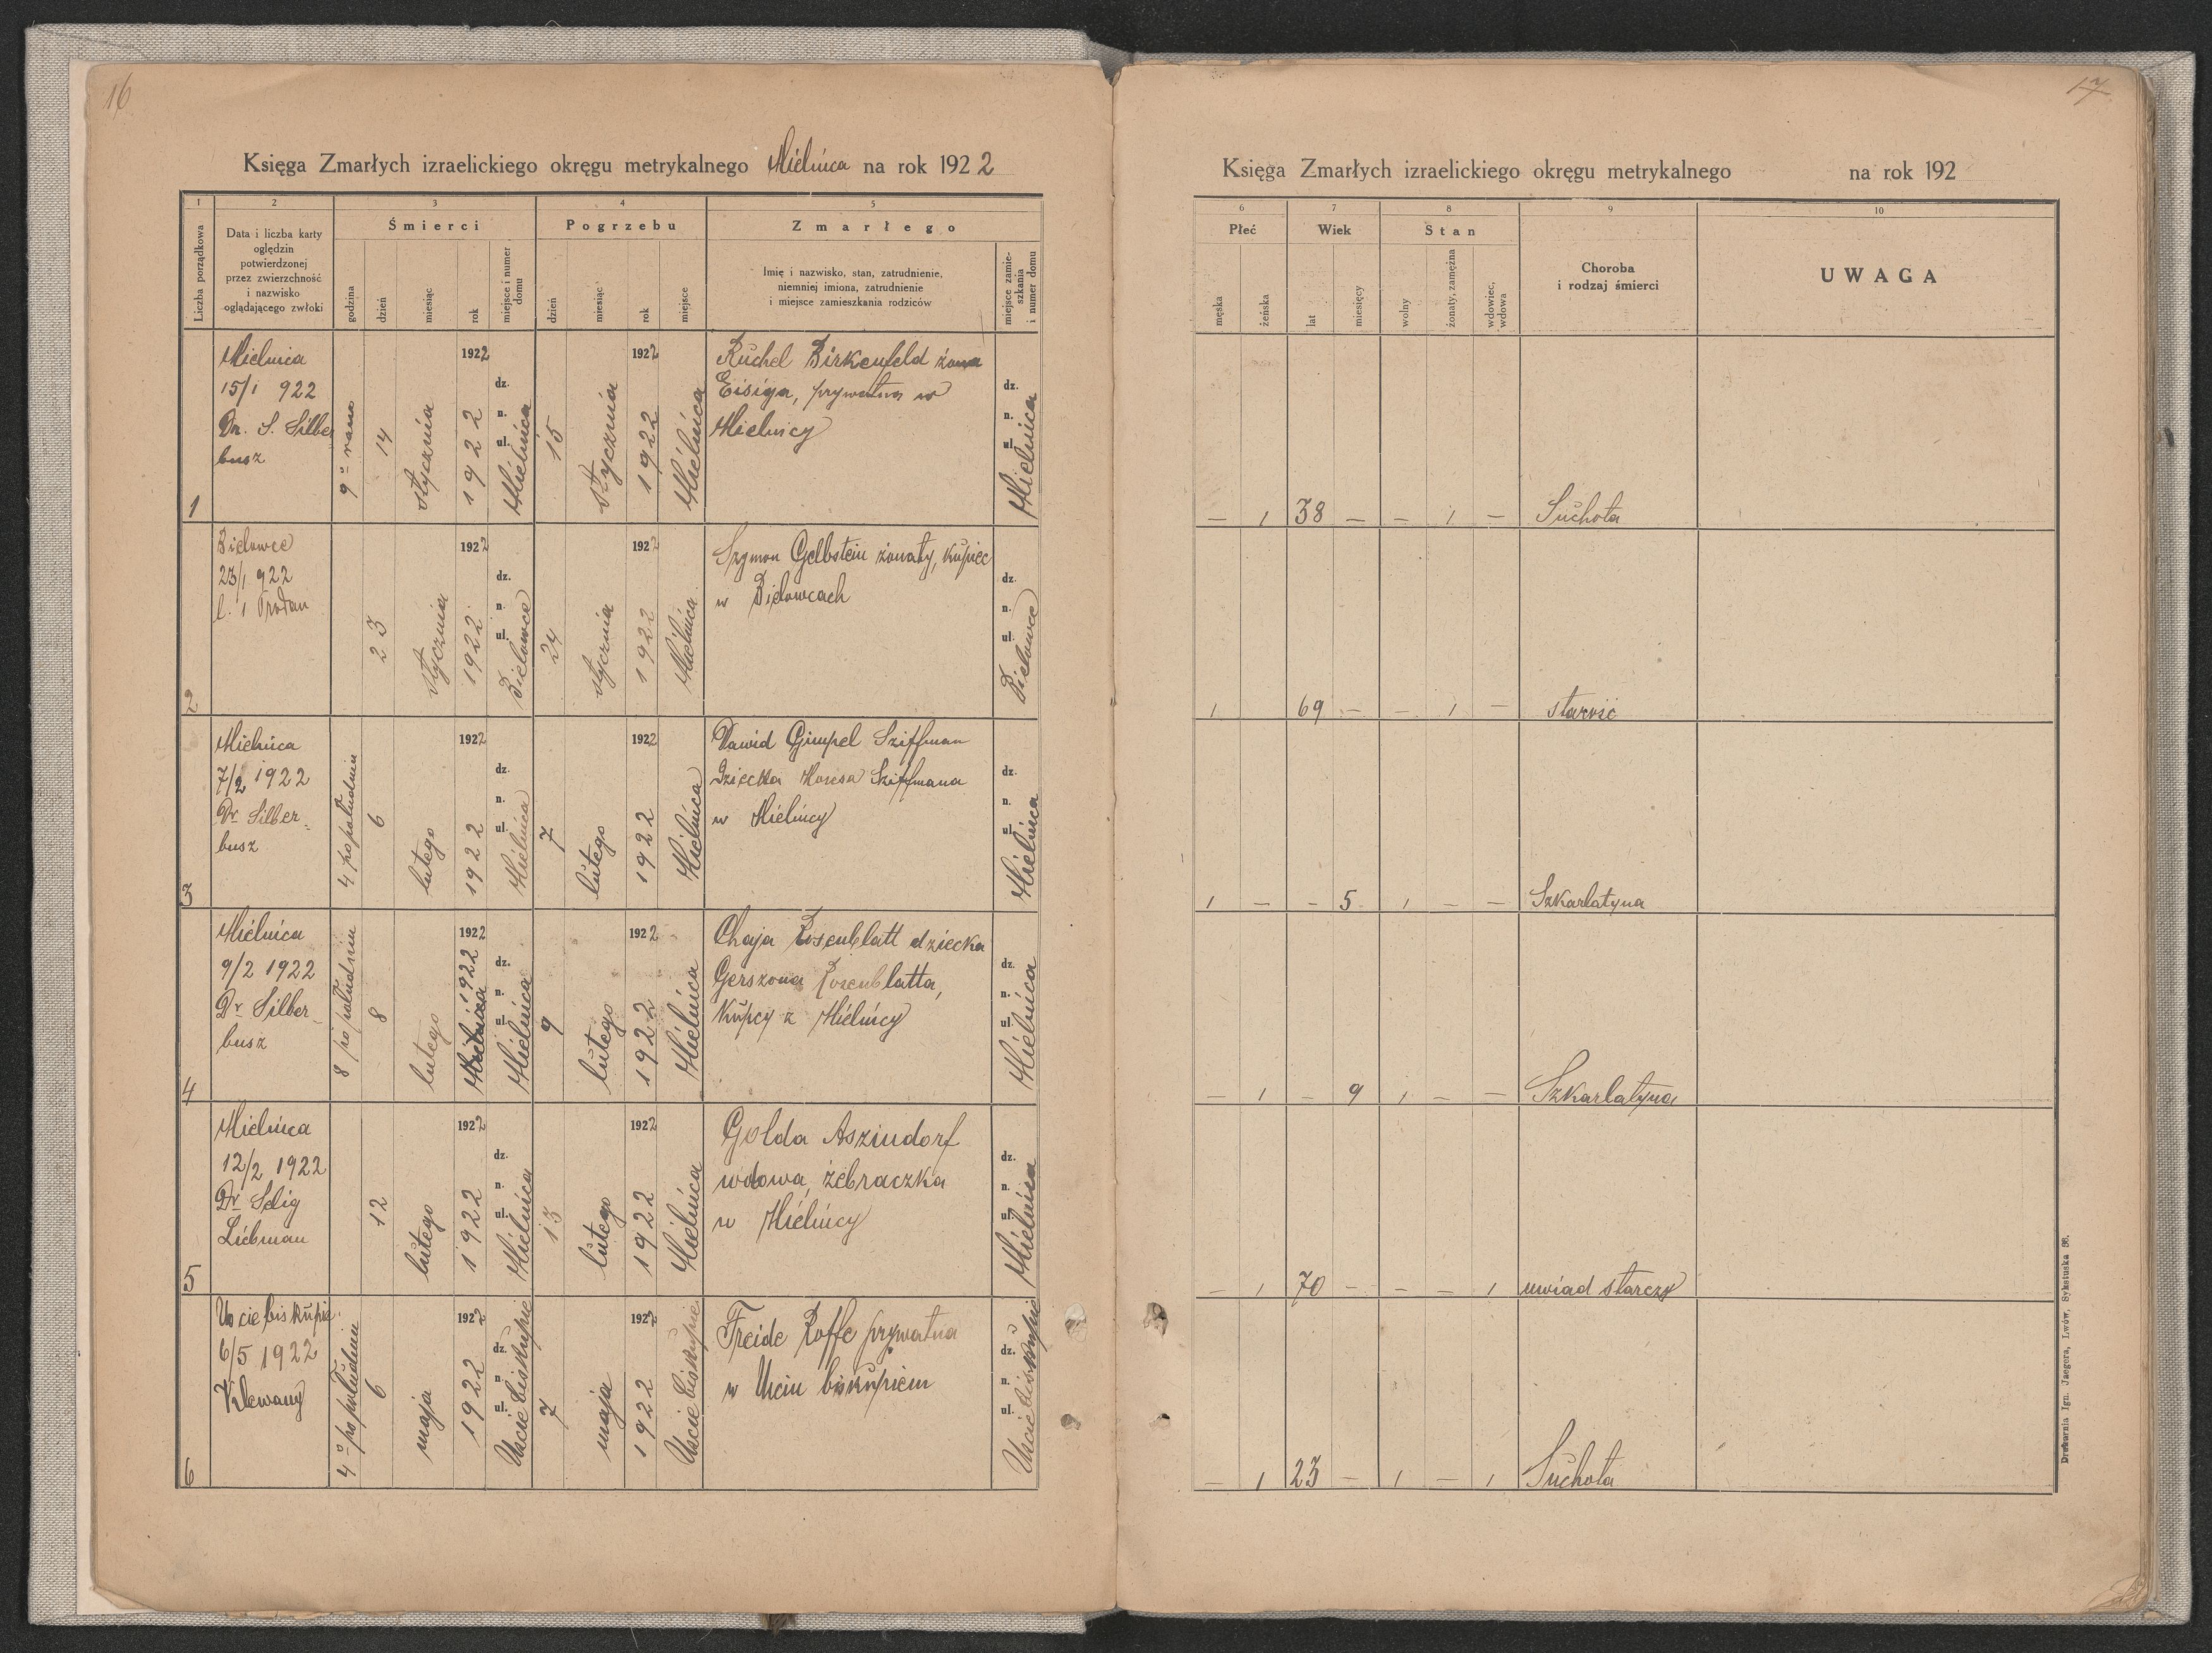 16
Księga Zmarłych izraelickiego okręgu metrykalnego Mielnica na rok 1922
1 2 3 4 5
Liczba porządkowa
Data i liczba karty
oględzin
potwierdzonej
przez zwierzchność
i nazwisko
oglądającego zwłoki
Śmierci
godzina
dzień
miesiąc
rok
miejsce i numer
domu
Pogrzebu
dzień
miesiąc
rok
miejsce
Zmarłego
Imię i nazwisko, stan, zatrudnienie,
niemniej imiona, zatrudnienie
i miejsce zamieszkania rodziców
miejsce zamie-
szkania
i numer domu
1
Mielnica
15/1 922
Dr. S. Silber
busz
9º rano
14
stycznia
1922
1922
dz.
n.
ul.
Mielnica
15
stycznia
1922
1922
Mielnica
Ruchel Birkenfeld żona
Eisiga, prywatna w
Mielnicy
dz.
n.
ul.
Mielnica
2
Bielowce
23/1 922
l. 1 Prodan
23
stycznia
1922
1922
dz.
n.
ul.
Bielowce
24
stycznia
1922
1922
Mielnica
Szymon Gelbstein żonaty, kupiec
w Bielowcach
dz.
n.
ul.
Bielowce
3
Mielnica
7/2 1922
Dr Silber-
busz
4 po południu
6
lutego
1922
1922
dz.
n.
ul.
Mielnica
7
lutego
1922
1922
Mielnica
Dawid Gimpel Sziffman
dziecka Mosesa Sziffmana
w Mielnicy
dz.
n.
ul.
Mielnica
4
Mielnica
9/2 1922
Dr Silber-
busz
8 po południu
8
lutego
1922
Mielnica 1922
dz.
n.
ul.
Mielnica
9
lutego
1922
1922
Mielnica
Chaja Rosenblatt dziecka
Gerszona Rosenblatta,
kupcy z Mielnicy
dz.
n.
ul.
Mielnica
5
Mielnica
12/2 1922
Dr Selig
Liebman
12
lutego
1922
1922
dz.
n.
ul.
Mielnica
13
lutego
1922
1922
Mielnica
Golda Aszindorf
wdowa, żebraczka
w Mielnicy
dz.
n.
ul.
Mielnica
6
Uscie biskupie
6/5 1922
Klewany
4º po południu
6
maja
1922
1922
dz.
n.
ul.
Uscie biskupie
7
maja
1922
1922
Uscie biskupie
Freide Roffe prywatna
w Usciu biskupiem
dz.
n.
ul.
Uscie biskupie
17
Księga Zmarłych izraelickiego okręgu metrykalnego na rok 192
6 7 8 9 10
Płeć
męska
żeńska
Wiek
lat
miesięcy
Stan
wolny
żonaty, zamężna
wdowiec,
wdowa
Choroba
i rodzaj śmierci
UWAGA
— 1 38 — — 1 — Suchota
1 69 — — 1 — starość
1 — — 5 1 — — Szkarlatyna
— 1 — 9 1 — — Szkarlatyna
— 1 70 — — — 1 uwiad starczy
— 1 23 — 1 — 1 Suchota
Drukarnia Ign. Jaegera, Lwów, Sykstuska 36.